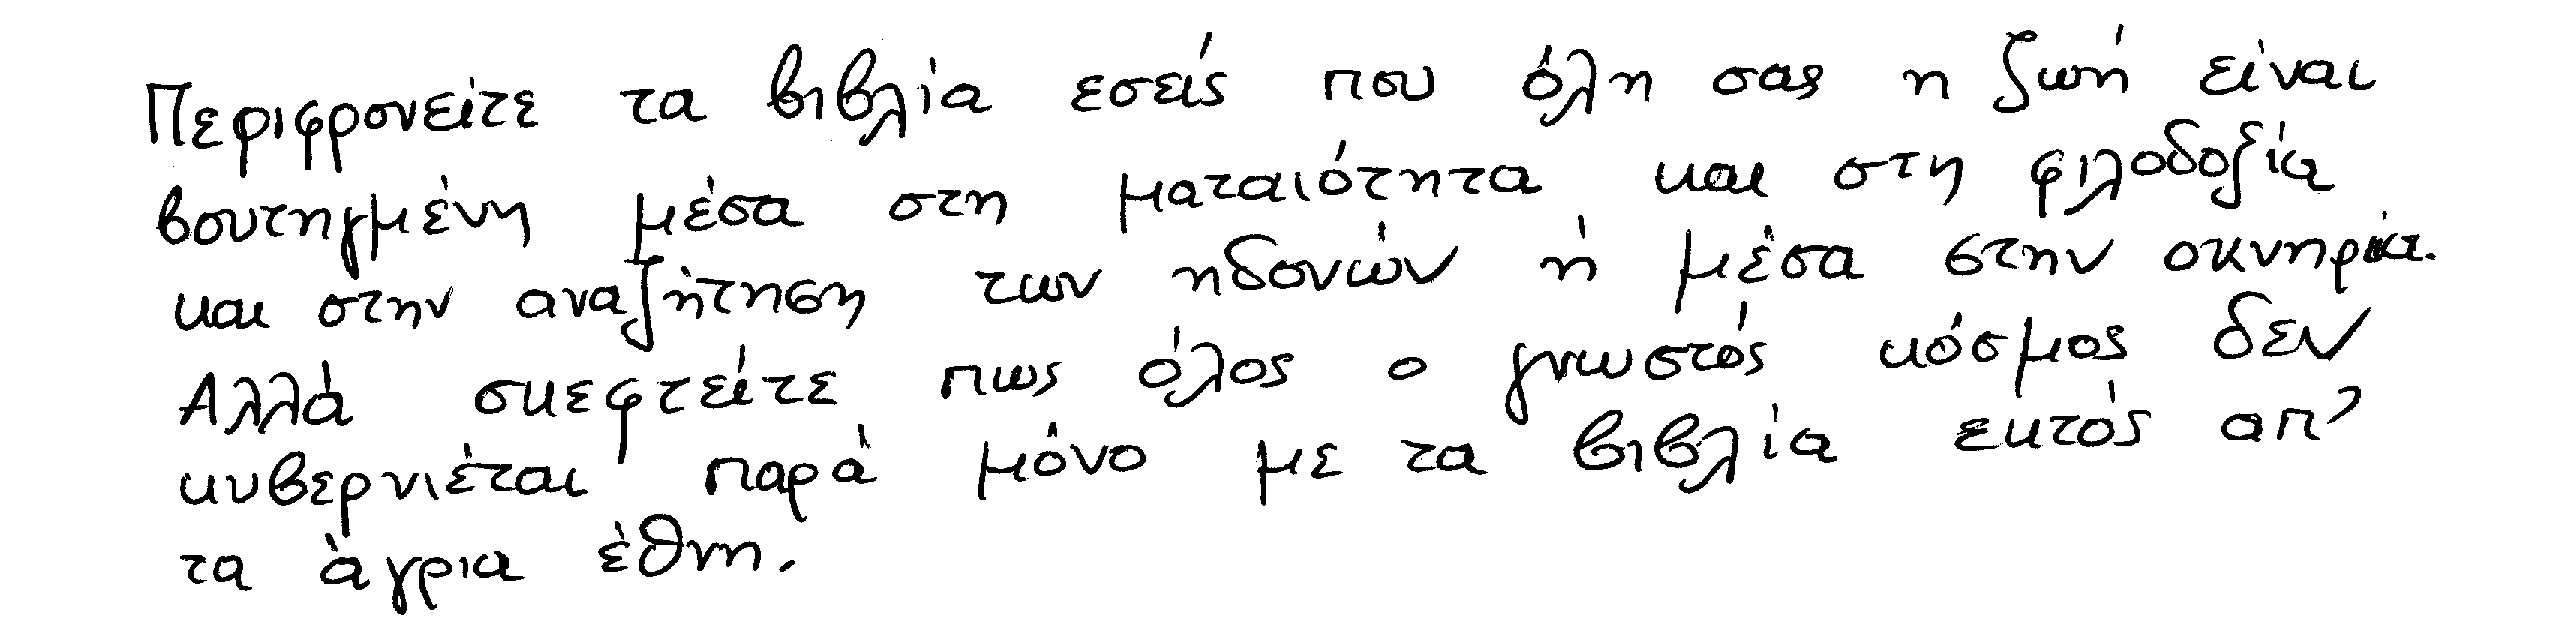 Περιφρονείτε τα βιβλία εσείς που όλη σας η ζωή είναι
βουτηγμένη μέσα στη ματαιότητα και στη φιλοδοξία
και στην αναζήτηση των ηδονών ή μέσα στην οκνηρία.
Αλλά σκεφτείτε πως όλος ο γνωστός κόσμος δεν
κυβερνιέται παρά μόνο με τα βιβλία εκτός απ'
τα άγρια έθνη.